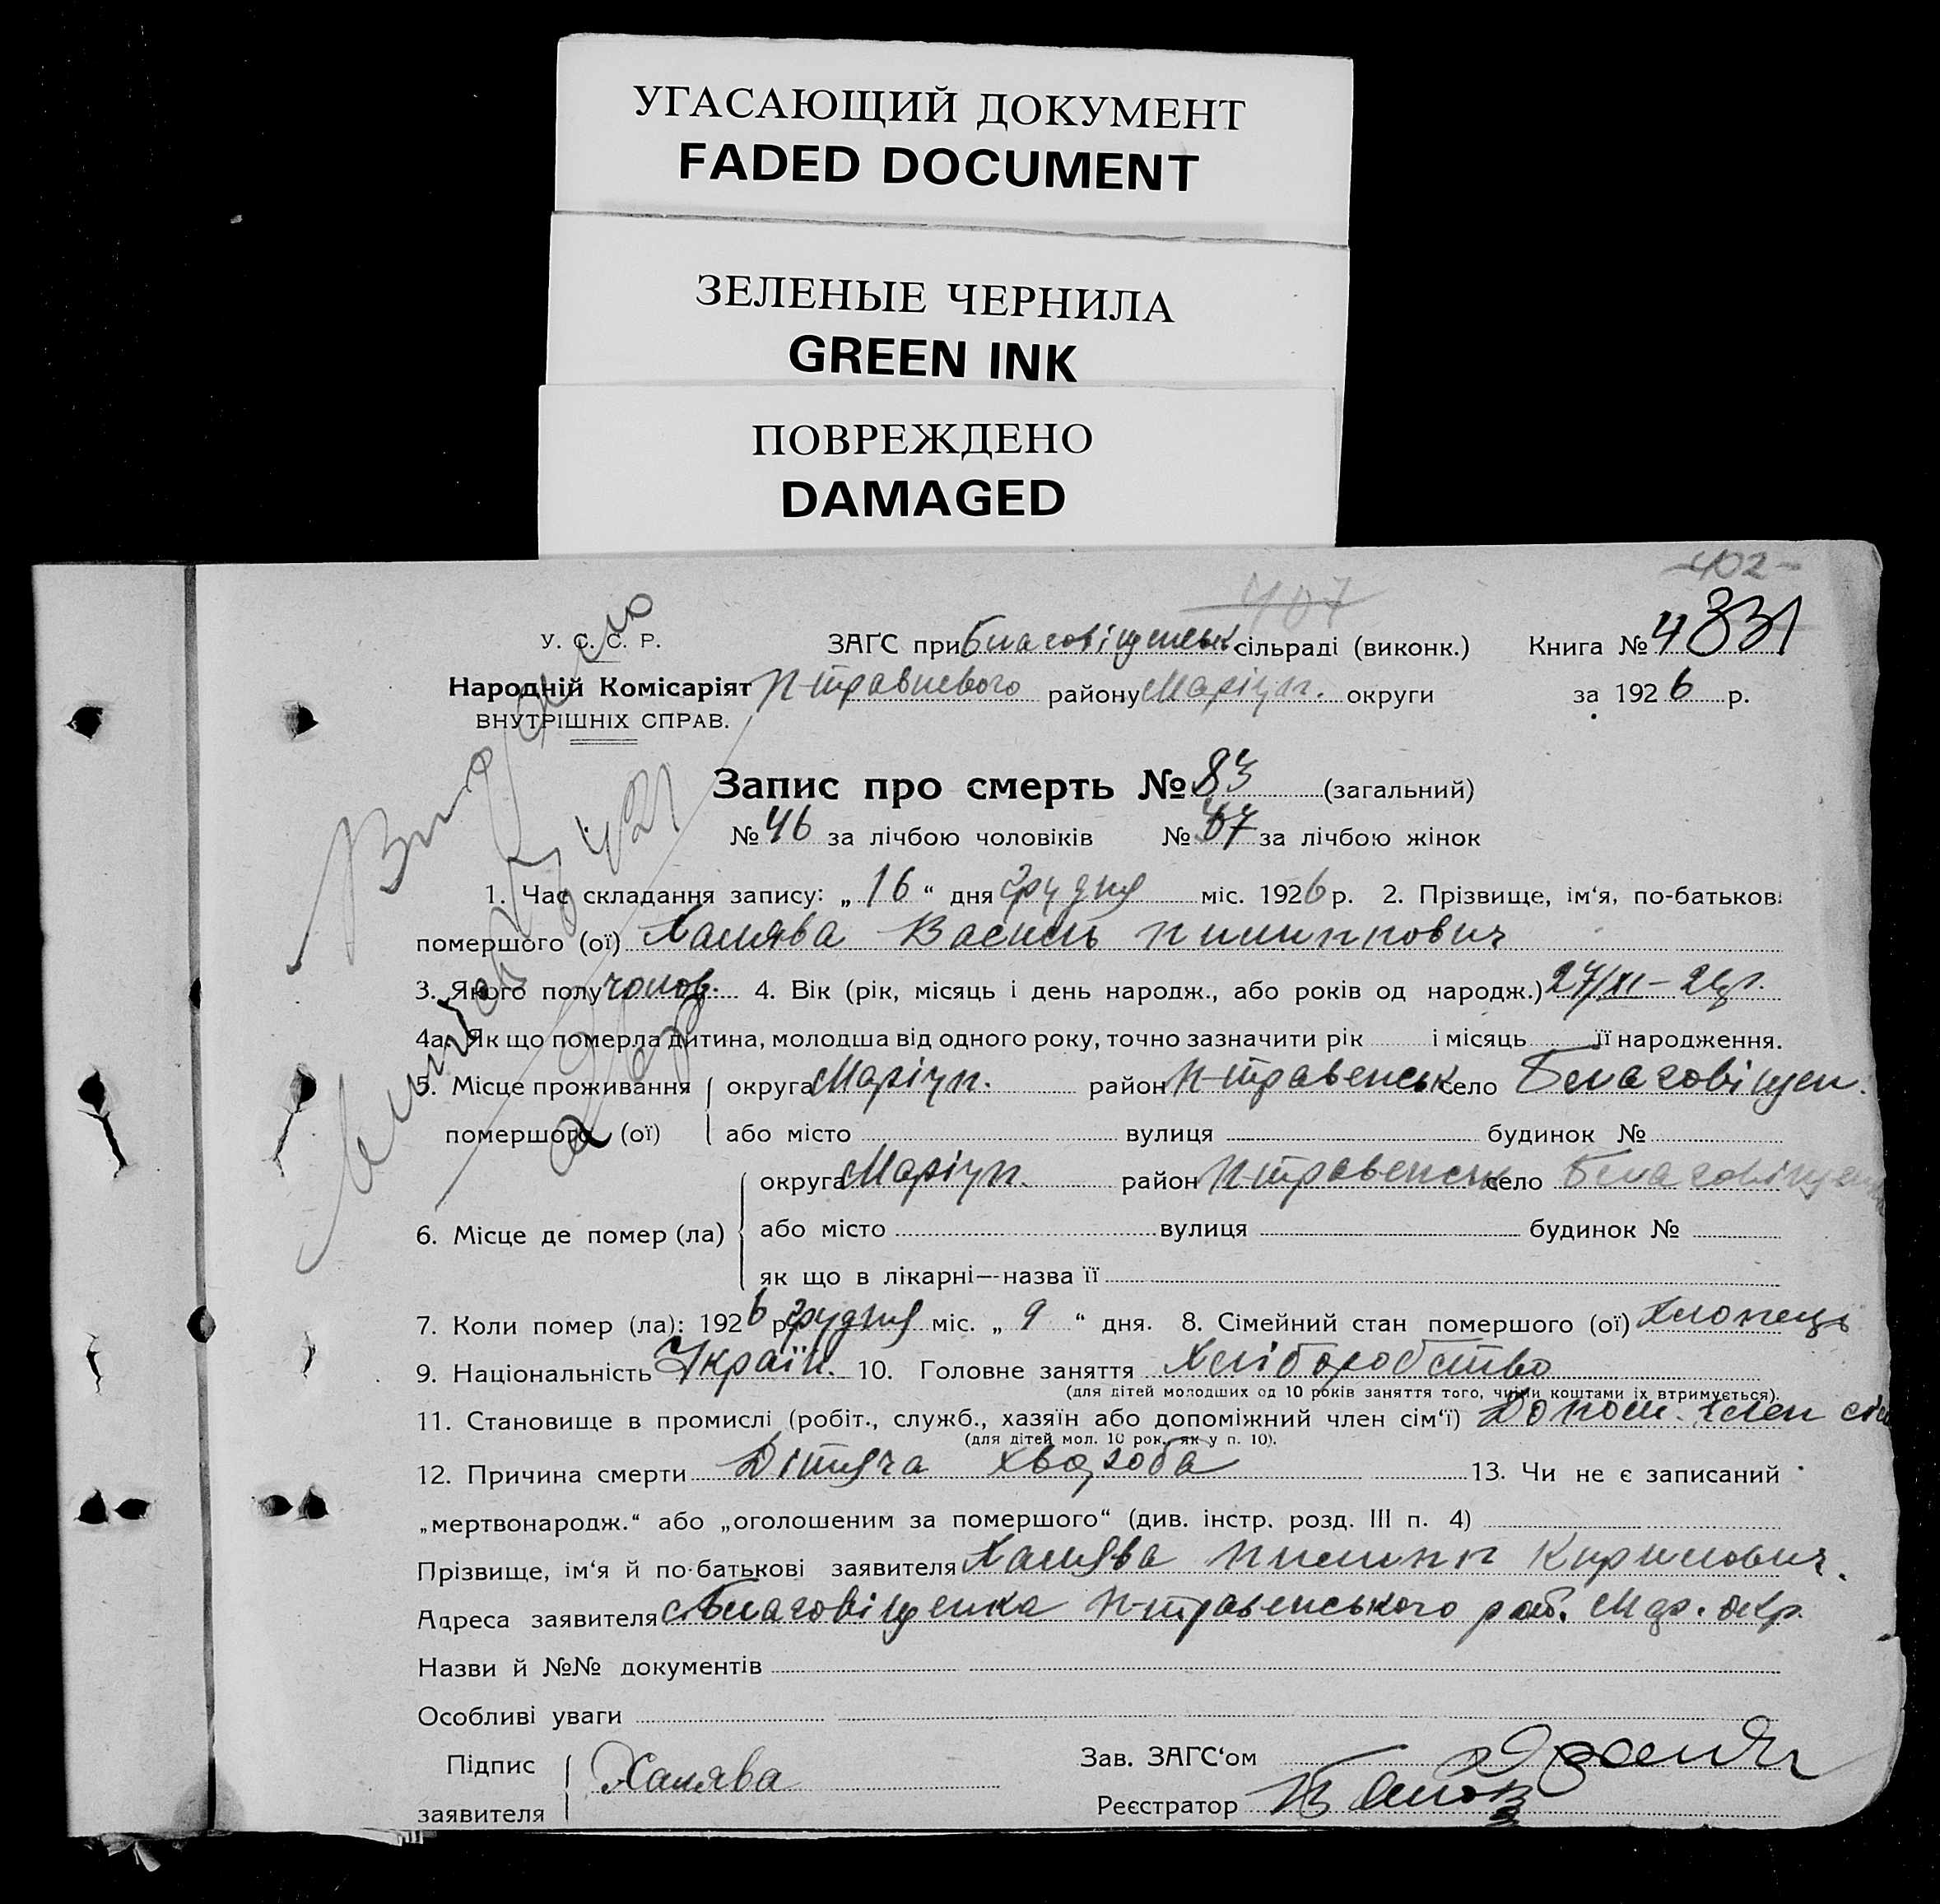 УГАСАЮЩИЙ ДОКУМЕНТ
FADED DOCUMENT
ЗЕЛЕНЫЕ ЧЕРНИЛА
GREEN INK
ПОВРЕЖДЕНО
DAMAGED
402
407
У. С. С. Р. ЗАҐС при Благовіщенськ сільраді (виконк.) Книга № 4 831
Народній Комісаріят П-травневого району Маріуп. округи за 1926 р.
ВНУТРІШНІХ СПРАВ.
Запис про смерть № 83 (загальний)
№ 46 за лічбою чоловіків № 37 за лічбою жінок
1. Час складання запису: „16“ дня грудня міс. 1926 р. 2. Прізвище, ім‘я, по-батькові
помершого (ої) Халява Василь Пилиппович
3. Якого полу чолов. 4. Вік (рік, місяць і день народж., або років од народж.) 27/XI–
4а. Як що померла дитина, молодша від одного року, точно зазначити рік і місяць її народження.
5. Місце проживання округа Маріуп. район П-травенськ село Благовіщен.
помершого (ої) або місто вулиця будинок №
округа Маріуп. район П-травенськ село Благовіщен
6. Місце де помер (ла) або місто вулиця будинок №
як що в лікарні—назва її
7. Коли помер (ла): 1926 р. грудня міс. „9“ дня. 8. Сімейний стан помершого (ої) хлопець
9. Національність Україн. 10. Головне заняття Хліборобство
(для дітей молодших од 10 років заняття того, чиїми коштами їх втримується).
11. Становище в промислі (робіт., служб., хазяїн або допоміжний член сім‘ї) Допом. член сім
(для дітей мол. 10 рок., як у п. 10).
12. Причина смерти Дітяча хвороба 13. Чи не є записаний
„мертвонародж.“ або „оголошеним за помершого“ (див. інстр. розд. III п. 4)
Прізвище, ім‘я й по-батькові заявителя Халява Пилипп Кирилович.
Адреса заявителя с. Благовіщенка П-травенського рай. Мар. окр.
Назви й №№ документів
Особливі уваги
Підпис Халява Зав. ЗАҐС‘ом
заявителя Реєстратор